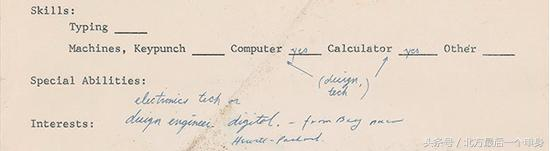 Skills:
Typing
Machines, Keypunch Computer yes Calculator yes Other
(design, tech)
Special Abilities:
electronics tech or
Interests: design engineer digital. - from Bay near
Hewitt-Packard
头条号 / 北方最后一个单身